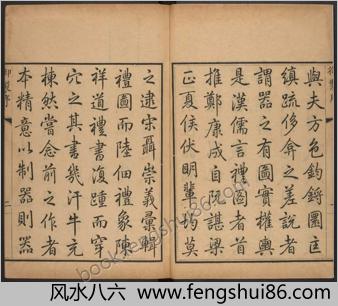 與夫方色鈞鋝圜匡
縝疏侈弇之差說者
謂器之有圖實權輿
是漢儒言禮圖者首
推鄭康成自阮諶梁
正夏侯伏明輩均莫
之逮宋聶崇義彙輯
禮圖而陸佃禮象陳
祥道禮書復踵而穿
穴之其書幾汗牛充
棟然嘗念前之作者
本精意以制器則器
御製序
二
风水八六 www.fengshui86.com